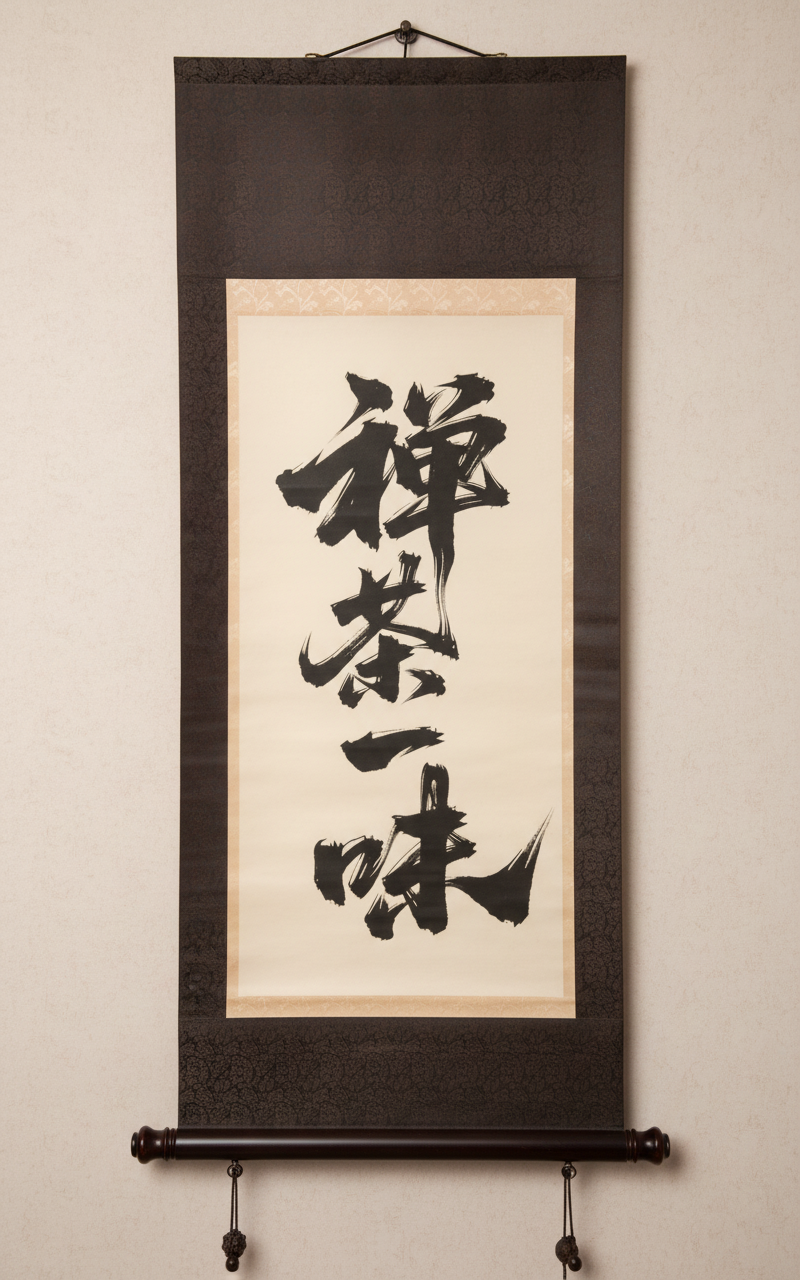 禅茶一味